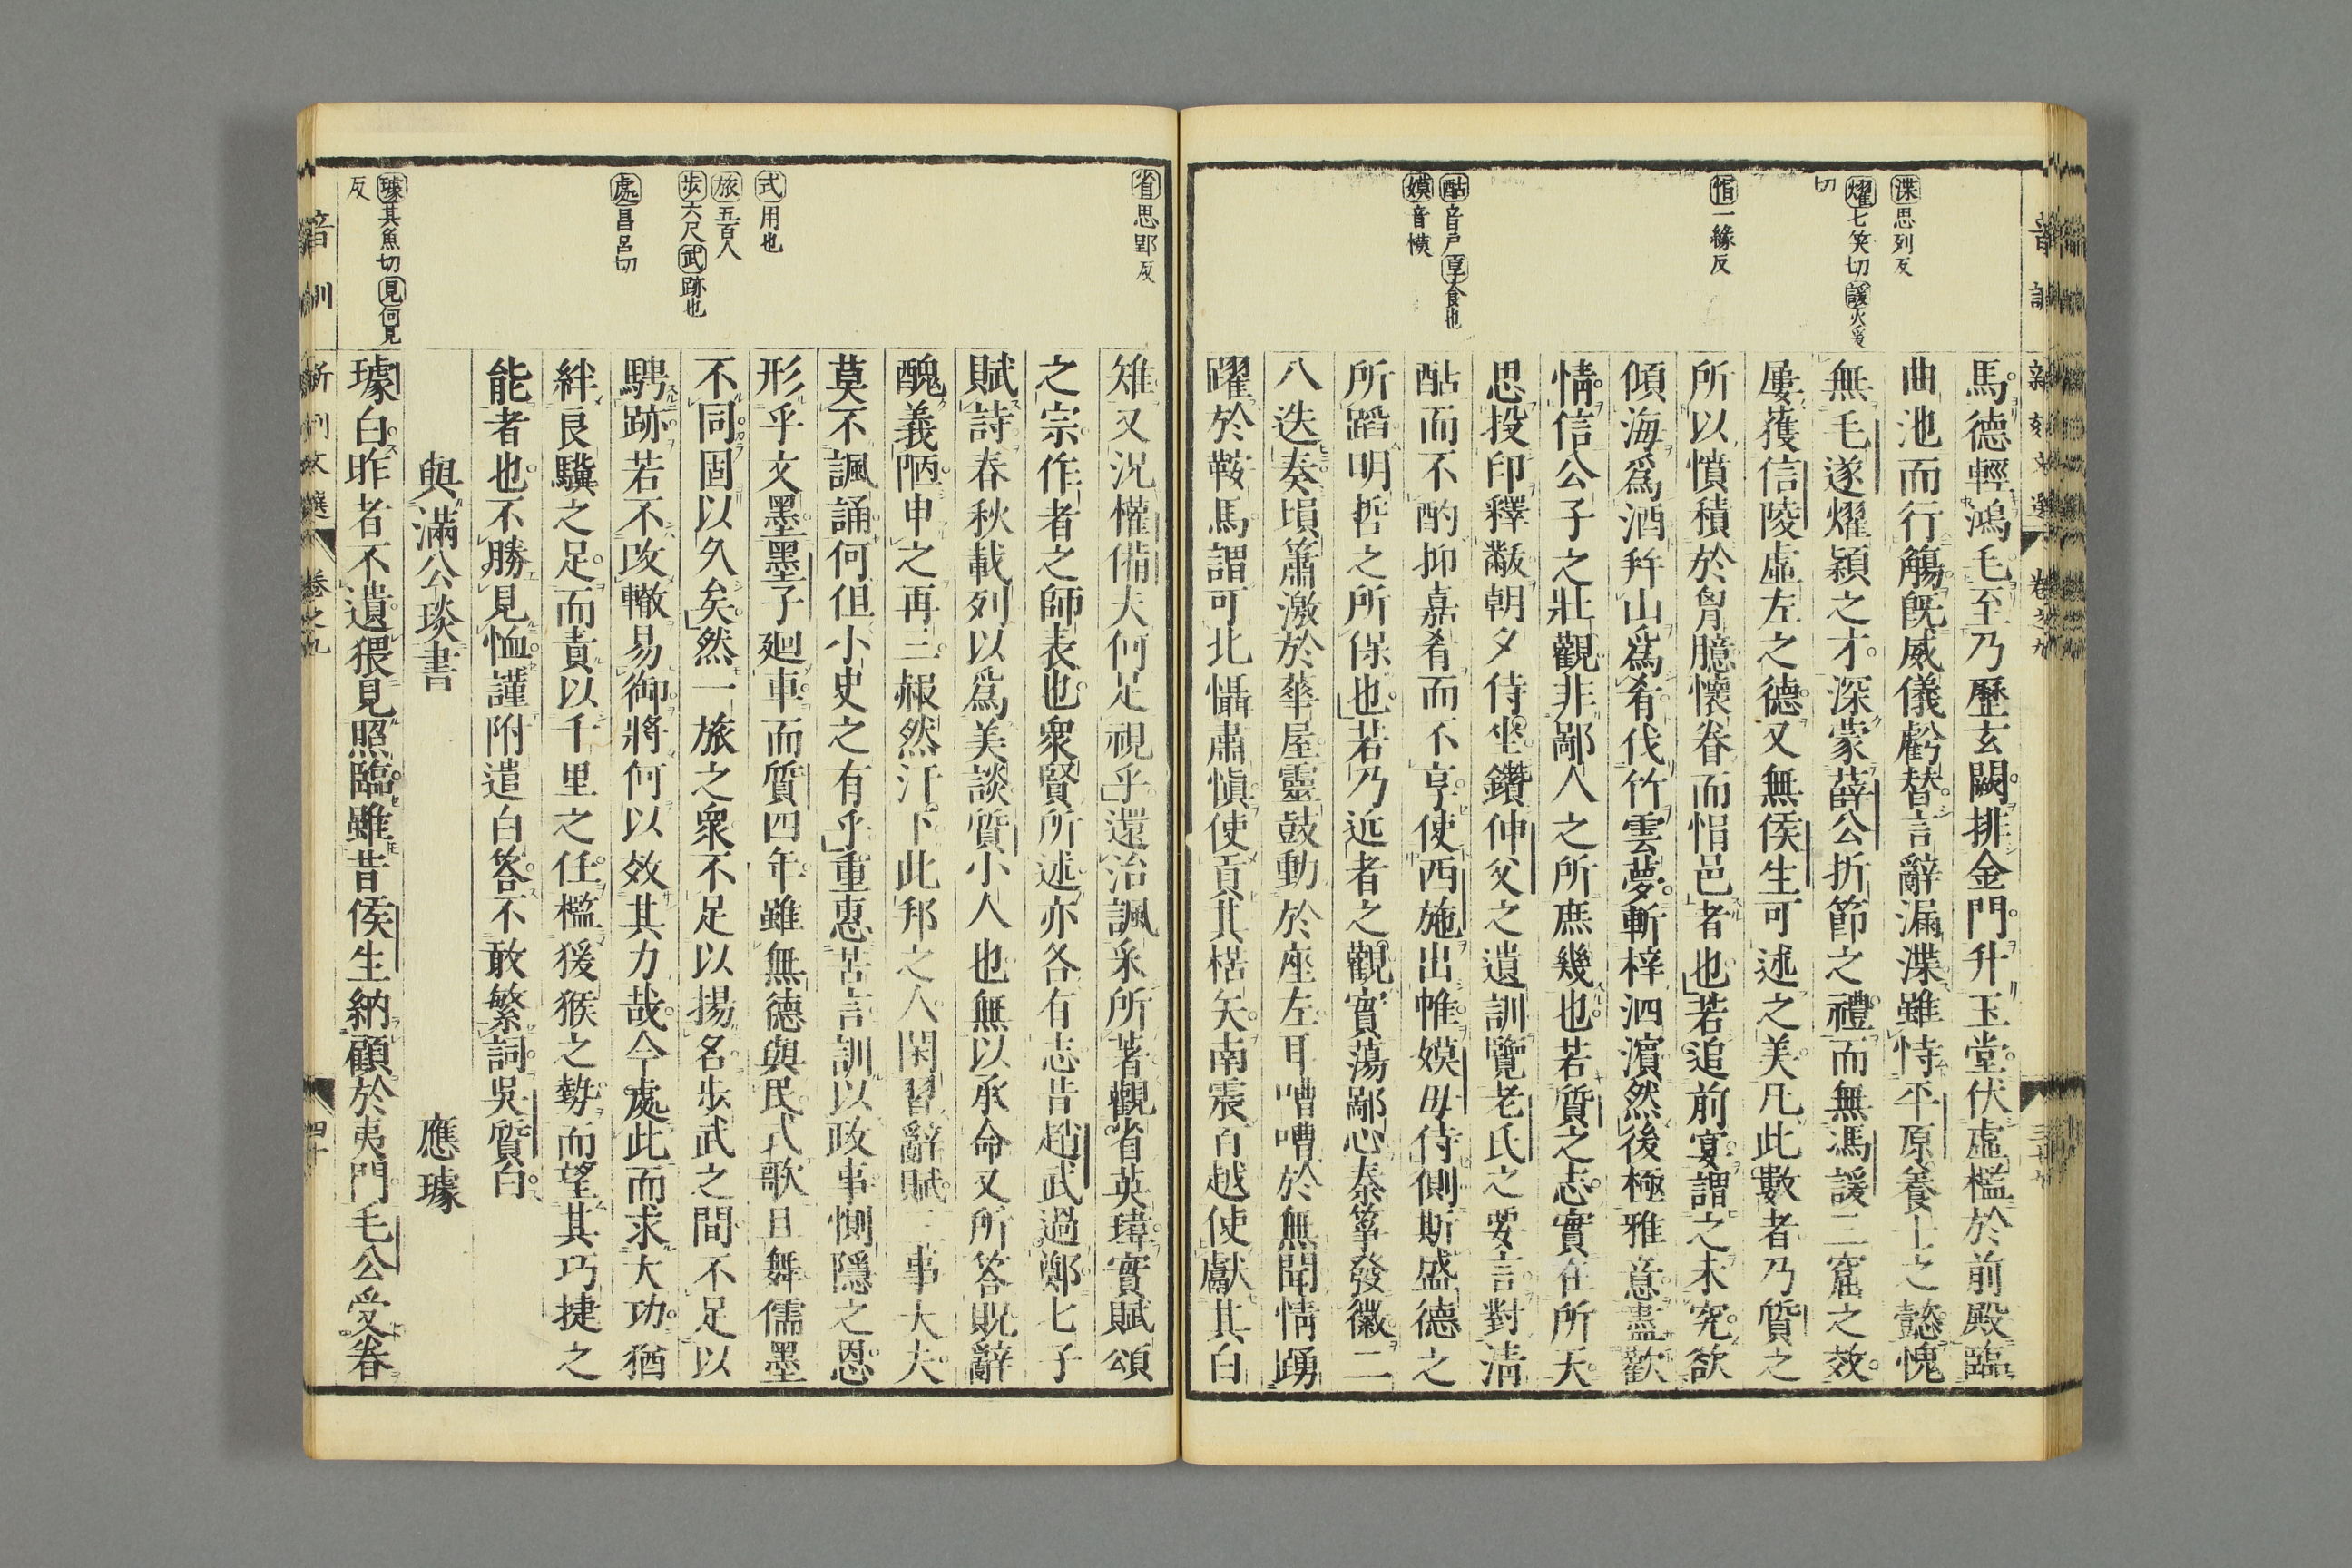 渫思列反
燿七笑切諼火爰
切
悁一縁反
酤音戸享食也
嫫音模
馬德輕鴻毛至乃歷玄闕排金門升玉堂伏虛檻於前殿臨
曲池而行觴既威儀虧替言辭漏渫雖恃平原養士之懿愧
無毛遂燿穎之才深蒙薛公折節之禮而無馮諼三窟之效
屢獲信陵虛左之德又無侯生可述之美凡此數者乃質之
所以憤積於胷臆懷眷而悁邑者也若追前宴謂之未究欲
傾海爲酒幷山爲肴伐竹雲夢斬梓泗濵然後極雅意盡歡
情信公子之壯觀非鄙人之所庶幾也若質之志實在所天
思投印釋黻朝夕侍坐鑽仲父之遺訓覽老氏之要言對淸
酤而不酌抑嘉肴而不享使西施出帷嫫母侍側斯盛德之
所蹈明哲之所保也若乃近者之觀實蕩鄙心秦箏發徽二
八迭奏塤簫激於華屋靈鼓動於座左耳嘈嘈於無聞情踴
躍於鞍馬謂可北懾肅愼使貢其楛矢南震百越使獻其白
省思郢反
式用也
旅五百人
步六尺武跡也
處昌呂切
璩其魚切見何見
反
雉又況權備夫何足視乎還治諷采所著觀省英瑋實賦頌
之宗作者之師表也衆賢所述亦各有志昔趙武過鄭七子
賦詩春秋載列以爲美談質小人也無以承命又所答貺辭
醜義陋申之再三赧然汗下此邦之人閑習辭賦三事大夫
莫不諷誦何但小史之有乎重惠苦言訓以政事惻隱之恩
形乎文墨墨子廻車而質四年雖無德與民式歌且舞儒墨
不同固以久矣然一旅之衆不足以揚名步武之間不足以
騁跡若不改轍易御將何以效其力哉今處此而求大功猶
絆良驥之足而責以千里之任檻猨猴之勢而望其巧捷之
能者也不勝見恤謹附遣白答不敢繁詞吳質白
與滿公琰書　應璩
璩白昨者不遺猥見照臨雖昔侯生納顧於夷門毛公受眷
音訓　新刊文選　卷之九　四十